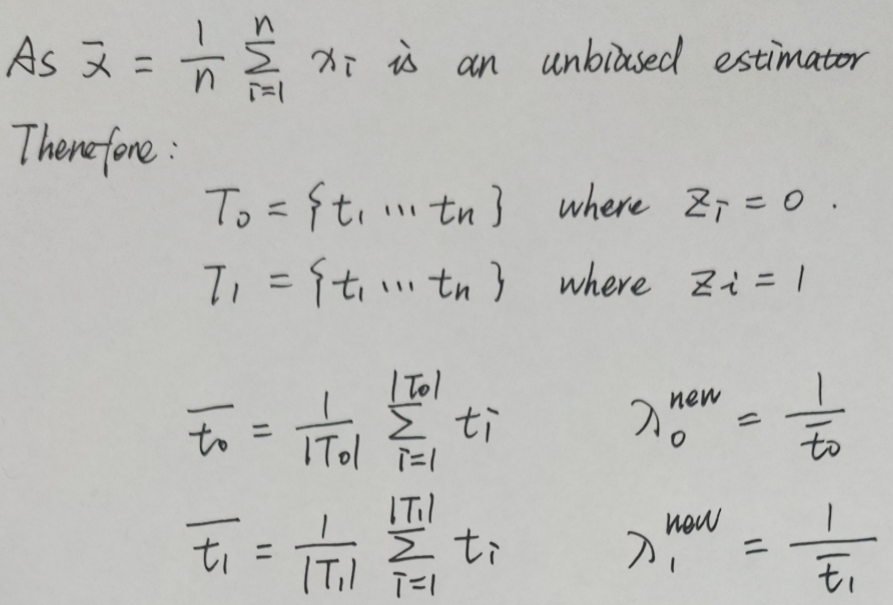 As x̄ = 1/n Σ_{i=1}^{n} xᵢ is an unbiased estimator
Therefore:
T₀ = {t₁ ... tₙ} where zᵢ = 0 .
T₁ = {t₁ ... tₙ} where zᵢ = 1
t̄₀ = 1/|T₀| Σ_{i=1}^{|T₀|} tᵢ λ₀^{new} = 1/t̄₀
t̄₁ = 1/|T₁| Σ_{i=1}^{|T₁|} tᵢ λ₁^{new} = 1/t̄₁